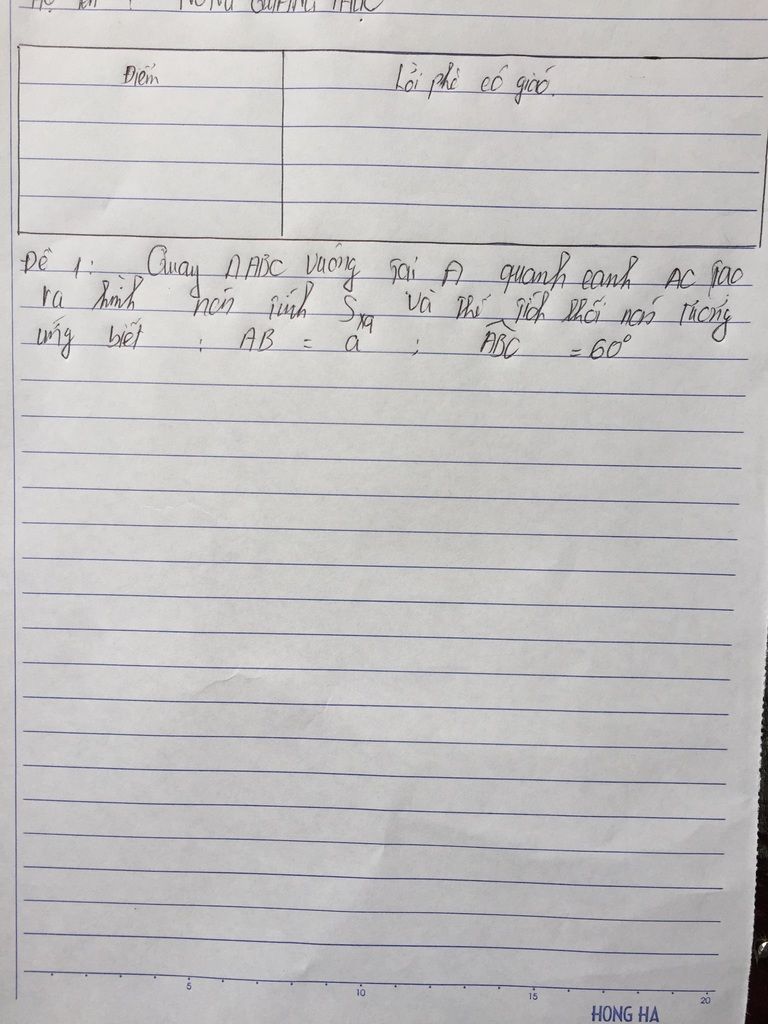 Họ tên :
Điểm
Lời phê cô giáo.
Đề 1: Quay ΔABC vuông tại A quanh cạnh AC tạo
ra hình nón tính Sxq và thể tích khối nón tương
ứng biết : AB = a ; ABC = 60°
5 10 15 20
HONG HA